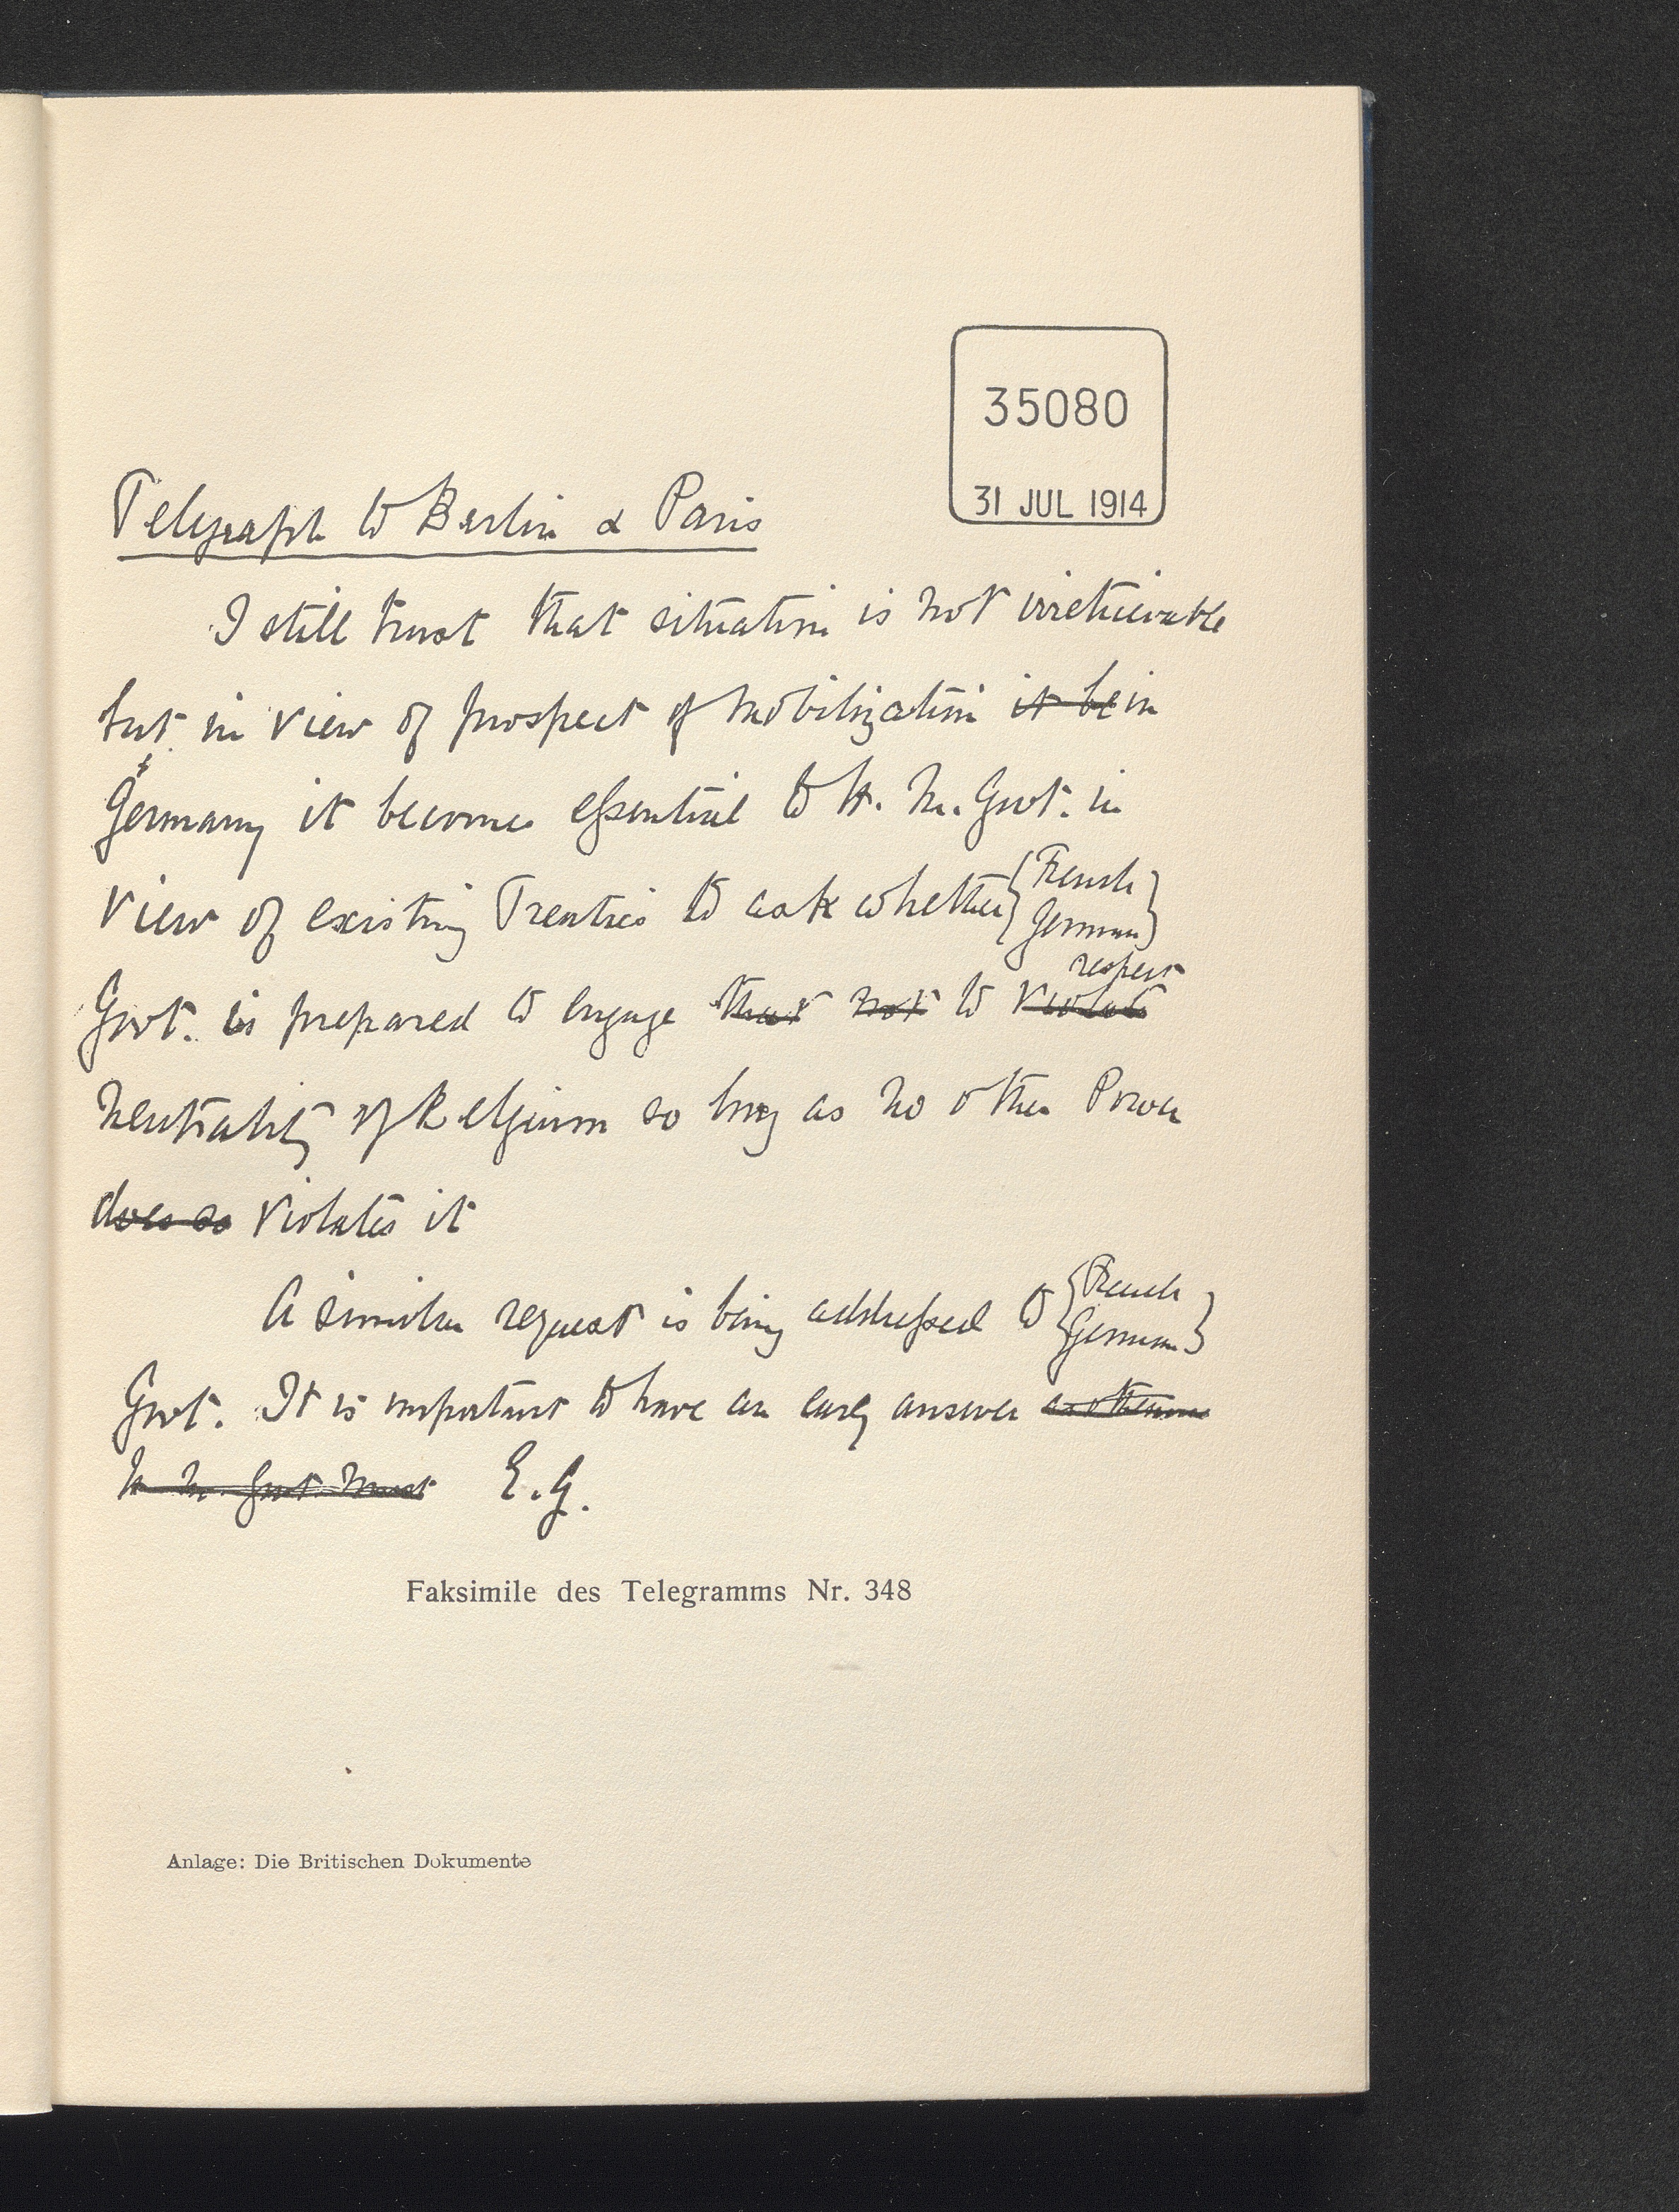 35080
31 JUL 1914
Telegraph to Berlin & Paris
I still trust that situation is not irretrievable
but in view of prospect of mobilization it be in
Germany it becomes essential to H. M. Govt. in
view of existing Treaties to ask whether { French
German }
respect
Govt. is prepared to engage that not to violate
neutrality of Belgium so long as no other Power
does so violates it
A similar request is being addressed to { French
German }
Govt. It is important to have an early answer as otherwise
H. M. Govt. must E. G.
Faksimile des Telegramms Nr. 348
Anlage: Die Britischen Dokumente